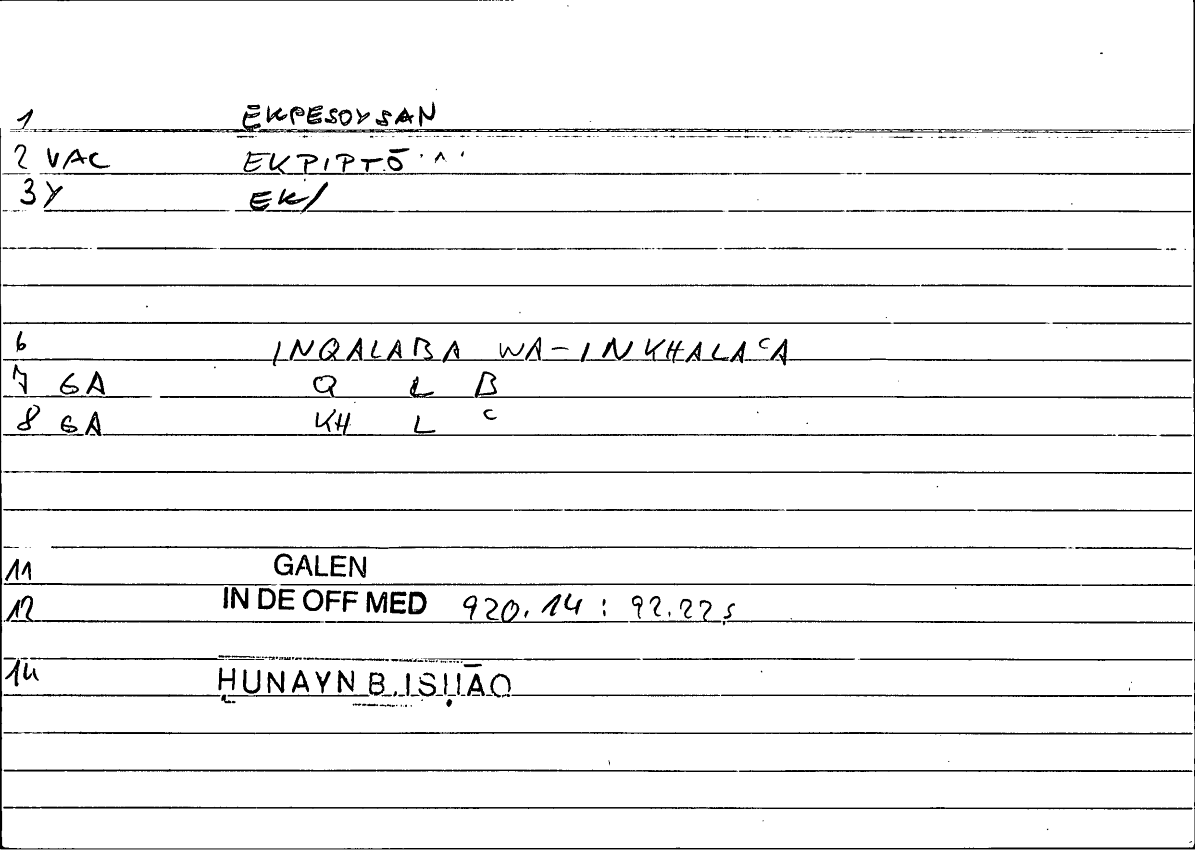 1 ĒKPESOYSAN
2 VAC EKPIPTŌ
3 Y EK/
6 INQALABA WA-INKHALAᶜA
7 GA Q L B
8 GA KH L ᶜ
11 GALEN
12 IN DE OFF MED 920.14 : 92.22 s
14 ḤUNAYN B. ISḤĀQ